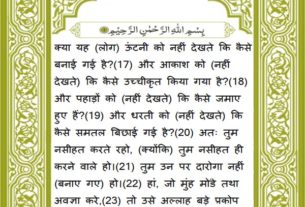 بِسْمِ اللهِ الرَّحْمٰنِ الرَّحِيْمِ
क्या यह (लोग) ऊंटनी को नहीं देखते कि कैसे
बनाई गई है?(17) और आकाश को (नहीं
देखते) कि कैसे उच्चीकृत किया गया है?(18)
और पहाड़ों को (नहीं देखते) कि कैसे जमाए
हुए हैं?(19) और धरती को (नहीं देखते) कि
कैसे समतल बिछाई गई है?(20) अतः तुम
नसीहत करते रहो, (क्योंकि) तुम नसीहत ही
करने वाले हो।(21) तुम उन पर दारोगा नहीं
(बनाए गए) हो।(22) हां, जो मुंह मोडे तथा
अवज्ञा करे,(23) तो उसे अल्लाह बड़े प्रकोप